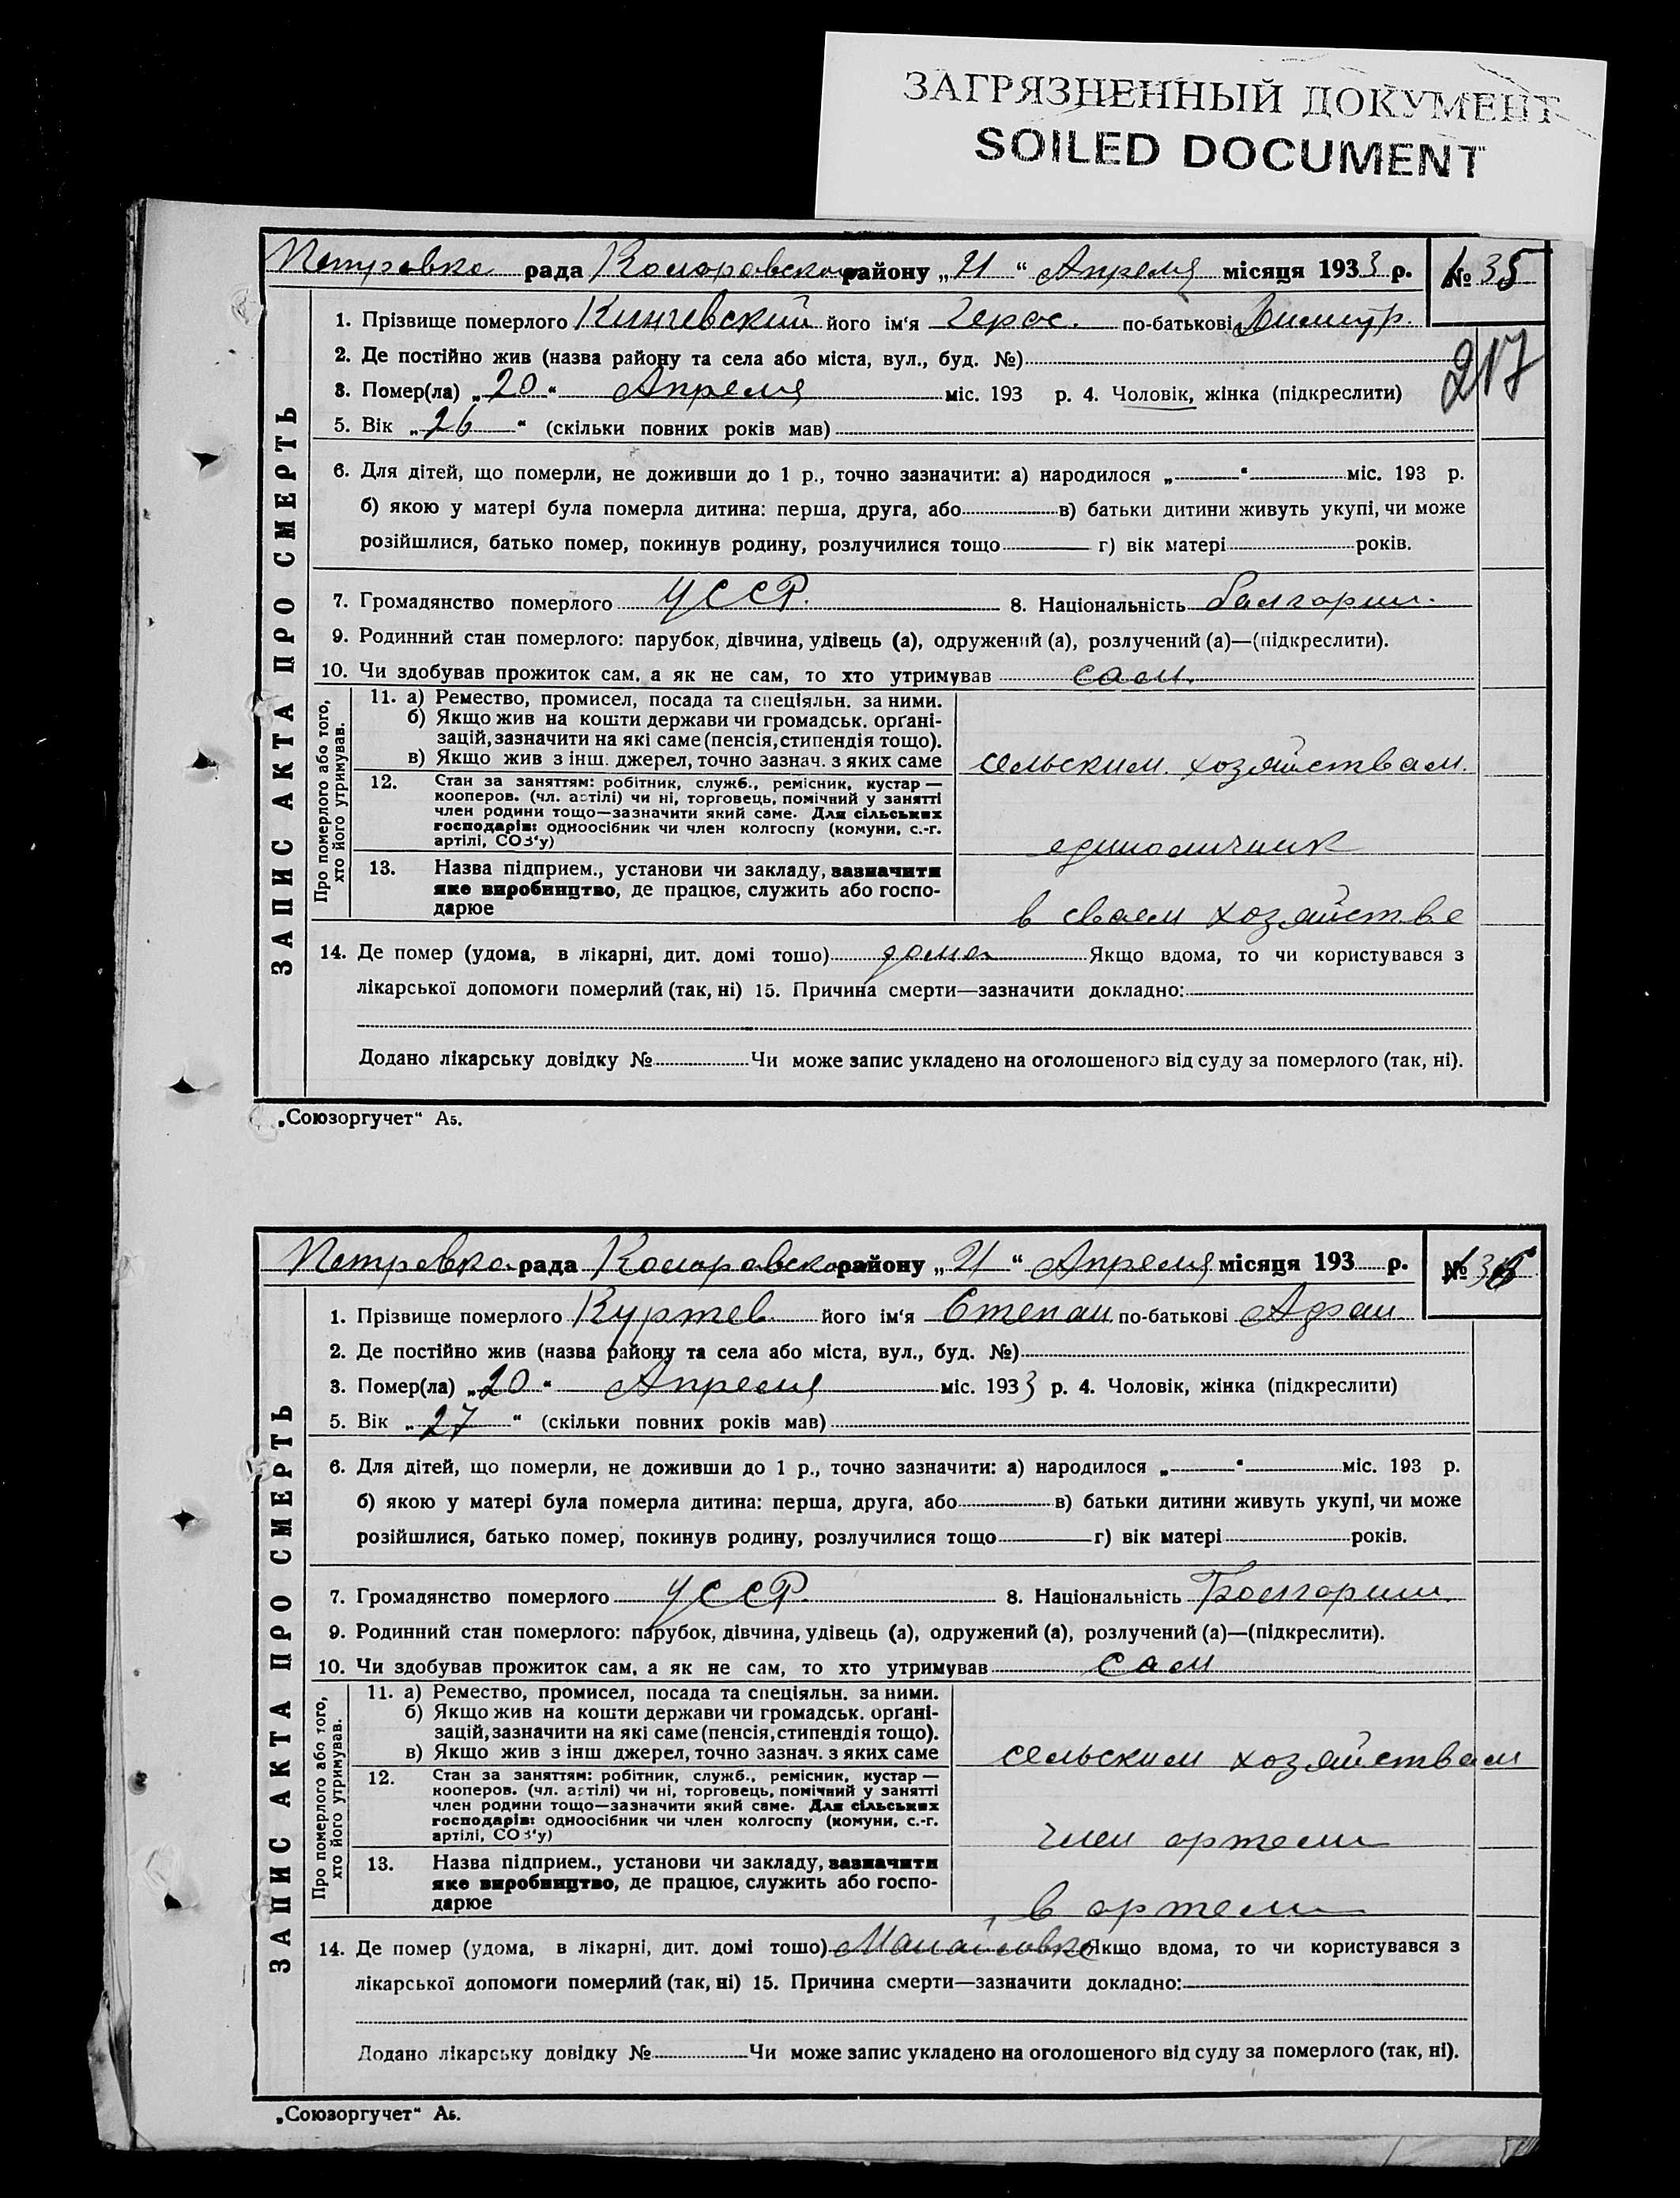 ЗАГРЯЗНЕННЫЙ ДОКУМЕНТ
SOILED DOCUMENT
Петровка рада Коларовского району „21“ Апреля місяця 1933 р. № 35
217
1. Прізвище померлого його ім'я Герас. по-батькові Димитр.
2. Де постійно жив (назва району та села або міста, вул., буд. №)
3. Помер(ла) „20“ Апреля міс. 193 р. 4. Чоловік, жінка (підкреслити)
5. Вік „26“ (скільки повних років мав)
6. Для дітей, що померли, не доживши до 1 р., точно зазначити: а) народилося „ “ міс. 193 р.
б) якою у матері була померла дитина: перша, друга, або в) батьки дитини живуть укупі, чи може
розійшлися, батько помер, покинув родину, розлучилися тощо г) вік матері років.
7. Громадянство померлого УССР. 8. Національність болгарин.
9. Родинний стан померлого: парубок, дівчина, удівець (а), одружений (а), розлучений (а)—(підкреслити).
10. Чи здобував прожиток сам, а як не сам, то хто утримував сам.
11. а) Ремество, промисел, посада та спеціяльн. за ними.
б) Якщо жив на кошти держави чи громадськ. орґані-
зацій, зазначити на які саме (пенсія, стипендія тощо).
в) Якщо жив з інш. джерел, точно зазнач. з яких саме сельским хозяйствам.
12. Стан за заняттям: робітник, служб., ремісник, кустар —
кооперов. (чл. астілі) чи ні, торговець, помічний у занятті
член родини тощо—зазначити який саме. Для сільських
господарів: одноосібник чи член колгоспу (комуни, с.-г.
артілі, СОЗ'у) единоличник
13. Назва підприєм., установи чи закладу, зазначити
яке виробництво, де працює, служить або госпо-
дарює в сваем хозяйстве
Про померлого або того,
хто його утримував.
14. Де помер (удома, в лікарні, дит. домі тошо) дома Якщо вдома, то чи користувався з
лікарської допомоги померлий (так, ні) 15. Причина смерти—зазначити докладно:
Додано лікарську довідку № Чи може запис укладено на оголошеного від суду за померлого (так, ні).
ЗАПИС АКТА ПРО СМЕРТЬ
„Союзоргучет“ А5.
Петровка рада Коларовского району „21“ Апреля місяця 193 р. № 36
1. Прізвище померлого Куртев його ім'я Степан по-батькові Адам.
2. Де постійно жив (назва району та села або міста, вул., буд. №)
3. Помер(ла) „20“ Апреля міс. 1933 р. 4. Чоловік, жінка (підкреслити)
5. Вік „27“ (скільки повних років мав)
6. Для дітей, що померли, не доживши до 1 р., точно зазначити: а) народилося „ “ міс. 193 р.
б) якою у матері була померла дитина: перша, друга, або в) батьки дитини живуть укупі, чи може
розійшлися, батько помер, покинув родину, розлучилися тощо г) вік матері років.
7. Громадянство померлого УССР. 8. Національність Болгарин.
9. Родинний стан померлого: парубок, дівчина, удівець (а), одружений (а), розлучений (а)—(підкреслити).
10. Чи здобував прожиток сам, а як не сам, то хто утримував сам
11. а) Ремество, промисел, посада та спеціяльн. за ними.
б) Якщо жив на кошти держави чи громадськ. орґані-
зацій, зазначити на які саме (пенсія, стипендія тощо).
в) Якщо жив з інш джерел, точно зазнач. з яких саме сельским хозяйствам
12. Стан за заняттям: робітник, служб., ремісник, кустар —
кооперов. (чл. артілі) чи ні, торговець, помічний у занятті
член родини тощо—зазначити який саме. Для сільських
господарів: одноосібник чи член колгоспу (комуни, с.-г.
артілі, СОЗ'у) член артели
13. Назва підприєм., установи чи закладу, зазначити
яке виробництво, де працює, служить або госпо-
дарює в артели
Про померлого або того,
хто його утримував.
14. Де помер (удома, в лікарні, дит. домі тошо) Якщо вдома, то чи користувався з
лікарської допомоги померлий (так, ні) 15. Причина смерти—зазначити докладно:
Додано лікарську довідку № Чи може запис укладено на оголошеного від суду за померлого (так, ні).
ЗАПИС АКТА ПРО СМЕРТЬ
„Союзоргучет“ А5.